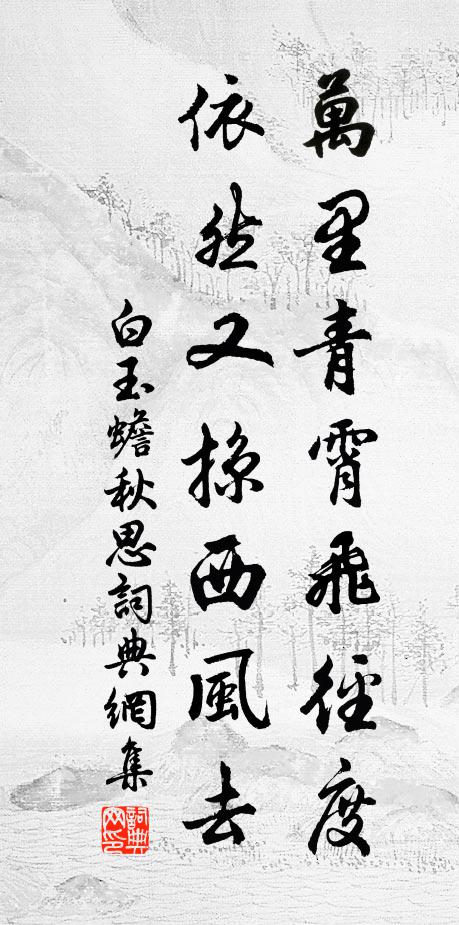 萬里青霄飛徑度
依然又掠西風去
白玉蟾秋思詞典網集
詞典網印